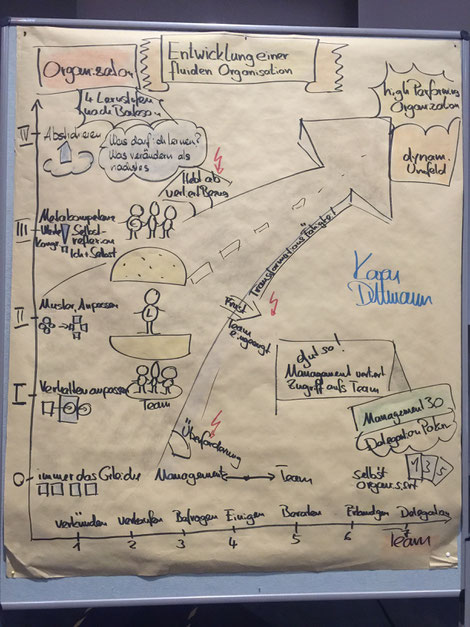 Organisation
Entwicklung einer
fluiden Organisation
4 Lernstufen
nach Bateson
high Performing
Organization
dynam.
Umfeld
IV
Was darf ich lernen?
Was verändern als
nächstes
Hebt ab
III
Metakompetenz
Selbst-
reflexion
Ich + Selbst
Transformations
II
Muster, Anpassen
L
Frust
Team
Karen
Dittmann
I
Verhalten anpassen
Team
gut so!
Management verliert
Zugriff aufs Team
Management 3.0
Delegation Poker
1 3 5
Überforderung
0
immer das Gleiche
Management
Team
Selbst
Organisiert
Verkünden
Verkaufen
Befragen
Einigen
Beraten
Erkundigen
Delegation
1 2 3 4 5 6
Team